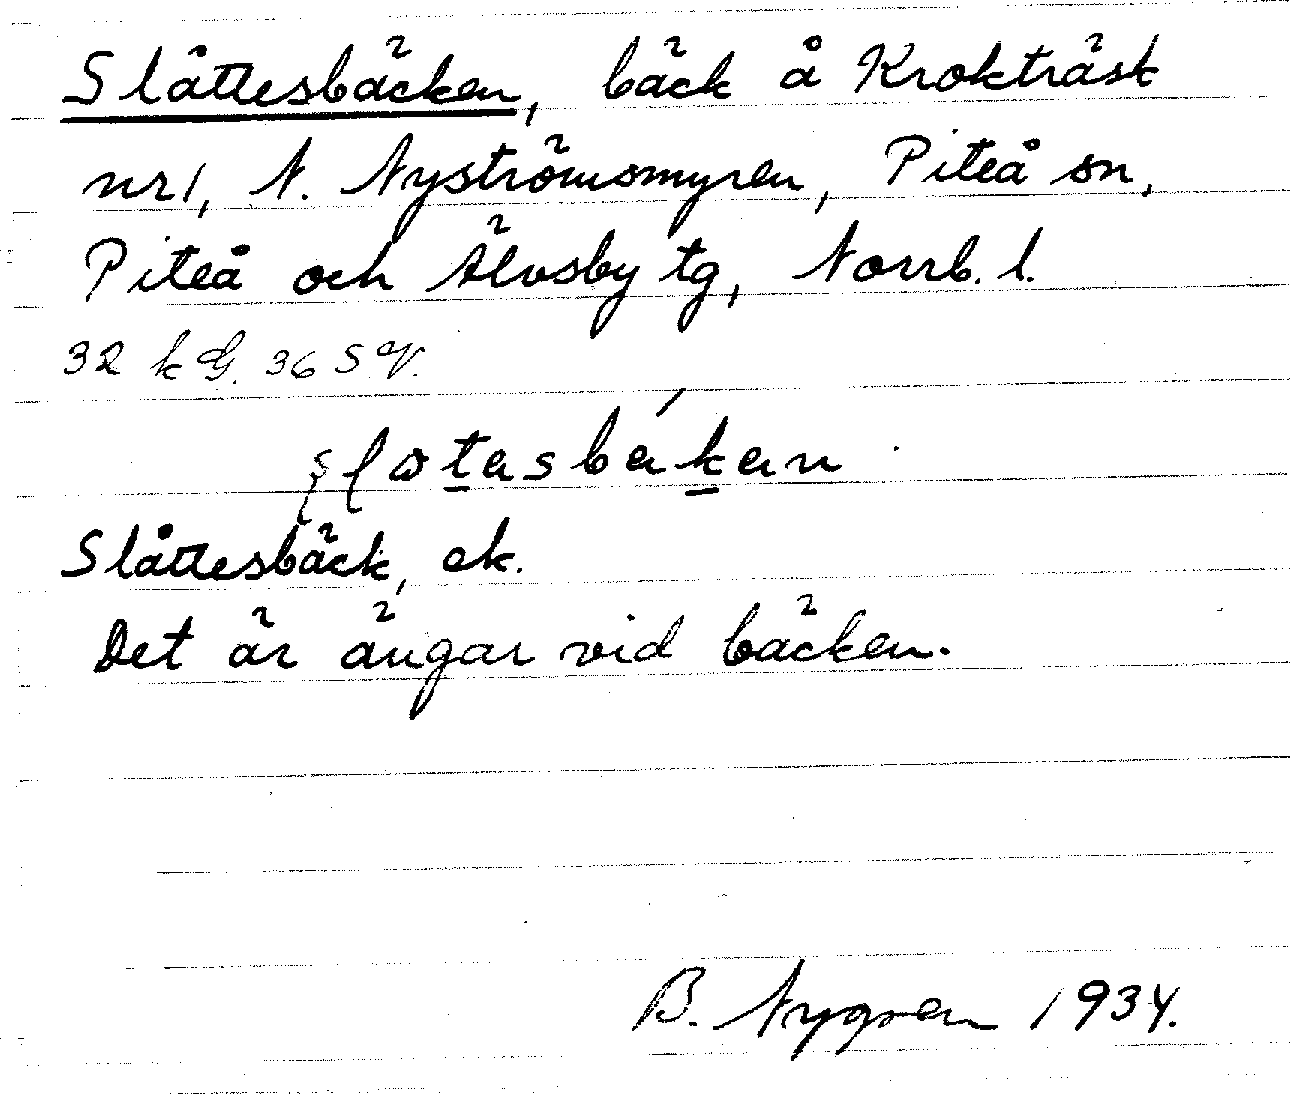 Slåttesbäcken, bäck å Kroketräsk
nr 1, N. Nyströmsmyren, Piteå sn,
Piteå och Älvsby tg, Norrb. l.
32 k G. 36 S V.
Slåttesbäck, ek.
Det är ängar vid bäcken.
B. Nygren 1934.